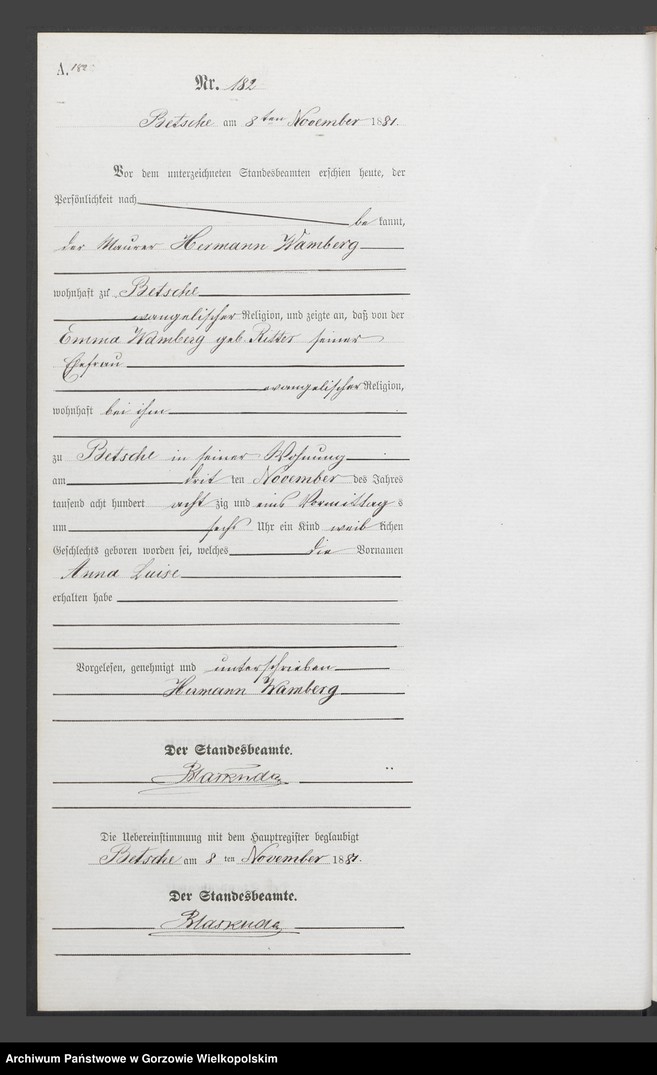 A. 182
Nr. 182
Betsche am 8ten November 1881.
Vor dem unterzeichneten Standesbeamten erschien heute, der
Persönlichkeit nach
be kannt,
der Maurer Hermann Wamberg
wohnhaft zu Betsche
evangelischer Religion, und zeigte an, daß von der
Emma Wamberg geb. Ritter seiner
Ehefrau
evangelischer Religion,
wohnhaft bei ihm
zu Betsche in seiner Wohnung
am drit ten November des Jahres
tausend acht hundert acht zig und eins Vormittag s
um sechs Uhr ein Kind weib lichen
Geschlechts geboren worden sei, welches die Vornamen
Anna Luise
erhalten habe
Vorgelesen, genehmigt und unterschrieben
Hermann Wamberg
Der Standesbeamte.
Die Uebereinstimmung mit dem Hauptregister beglaubigt
Betsche am 8 ten November 1881.
Der Standesbeamte.
Archiwum Państwowe w Gorzowie Wielkopolskim